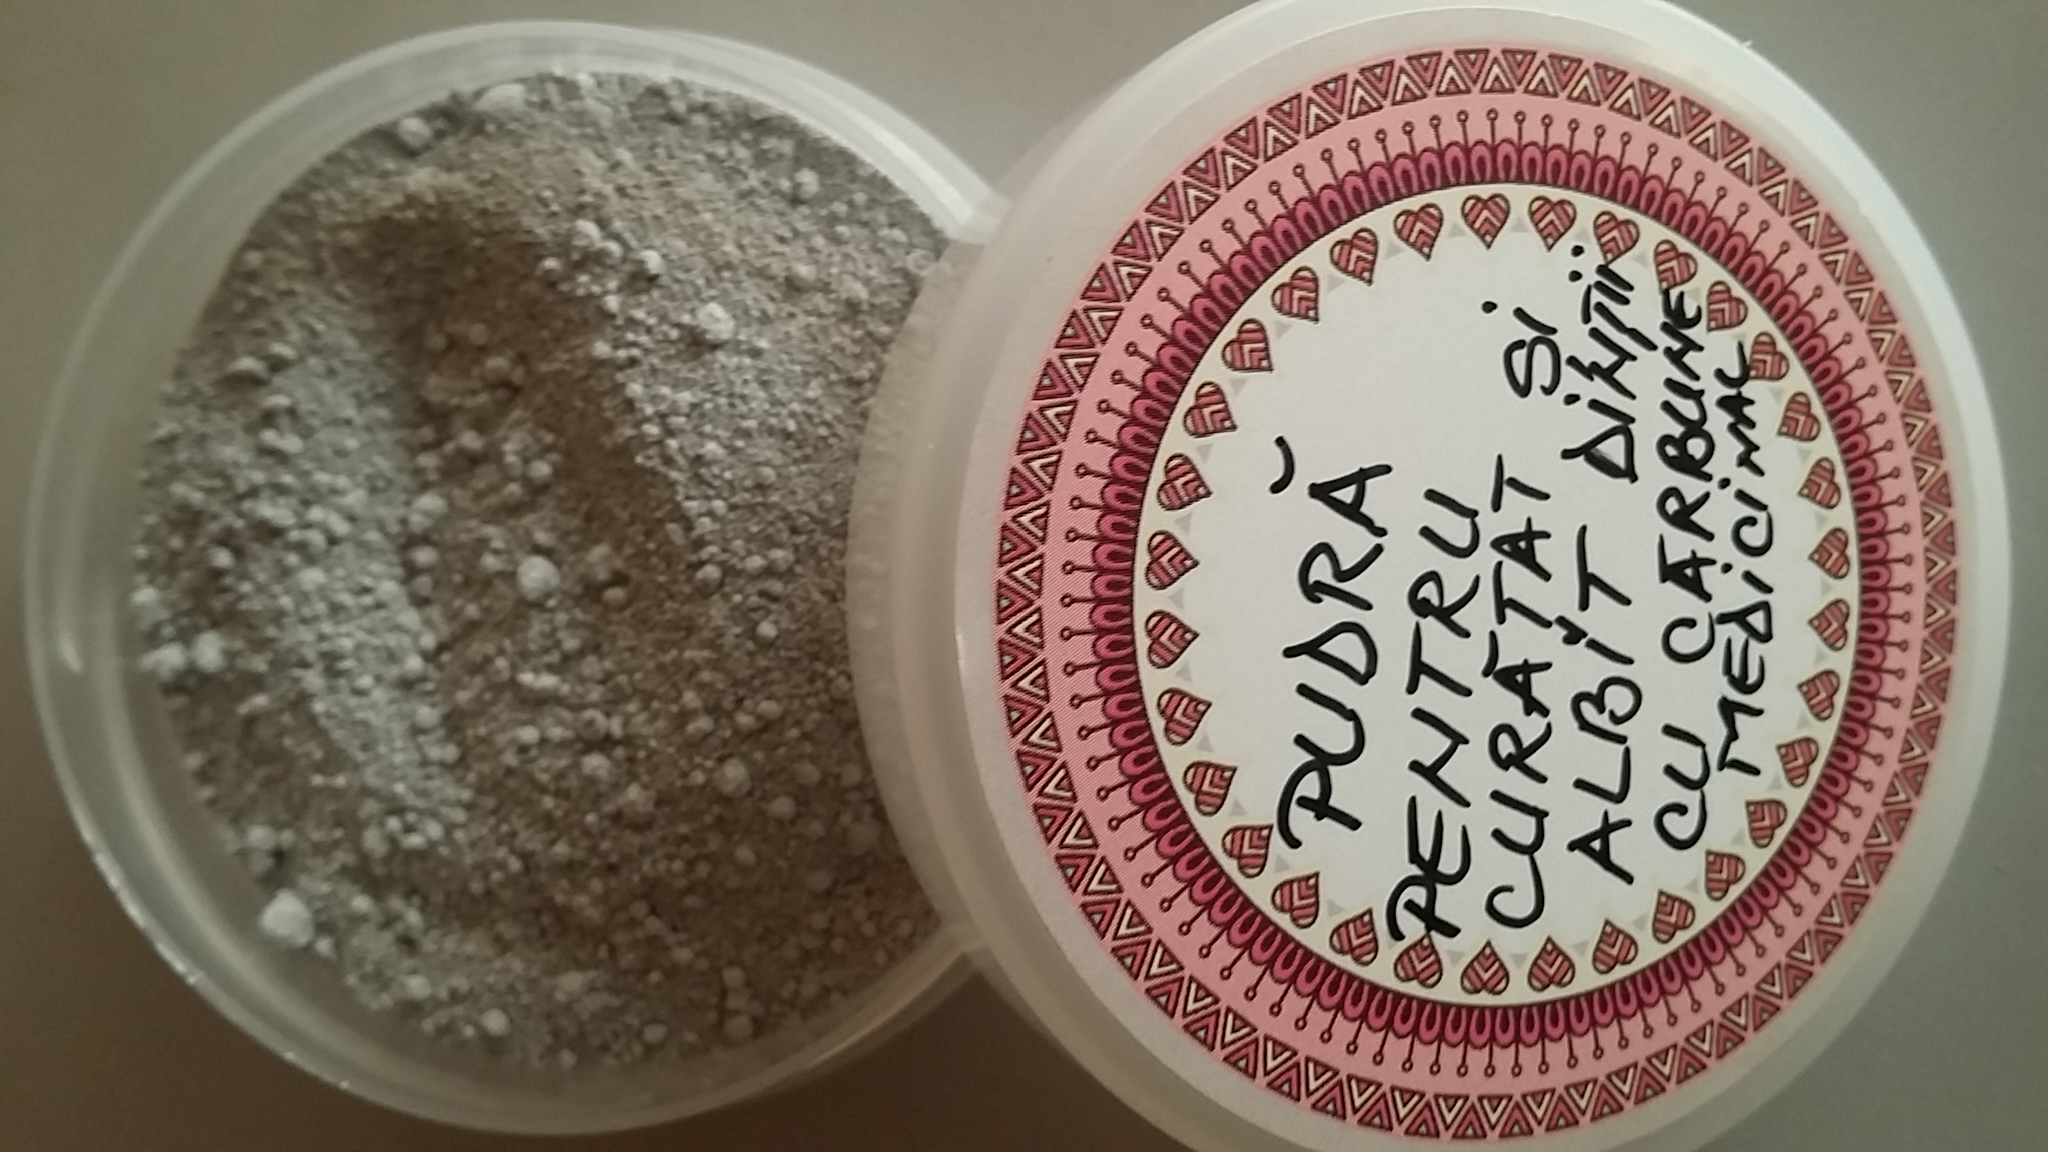 PUDRĂ
PENTRU
CURĂȚAT Și
ALBIT DiNȚii
CU CĂRBUNE
MEDiCiNAL